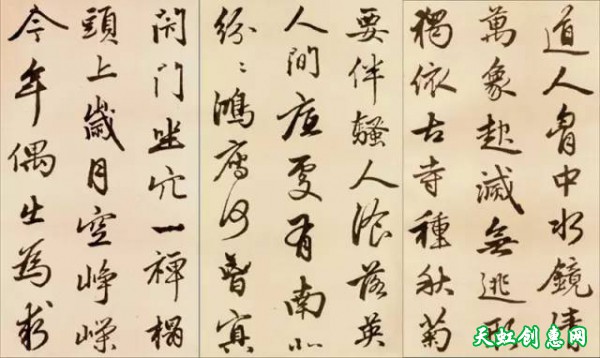 道人胷中水鏡清
萬象起滅無逃形
獨依古寺種秋菊
要伴騷人飡落英
人間底處有南北
紛〻鴻鴈何曾冥
閉門坐穴一禪榻
頭上歲月空崢嶸
今年偶出為求
天虹创意网